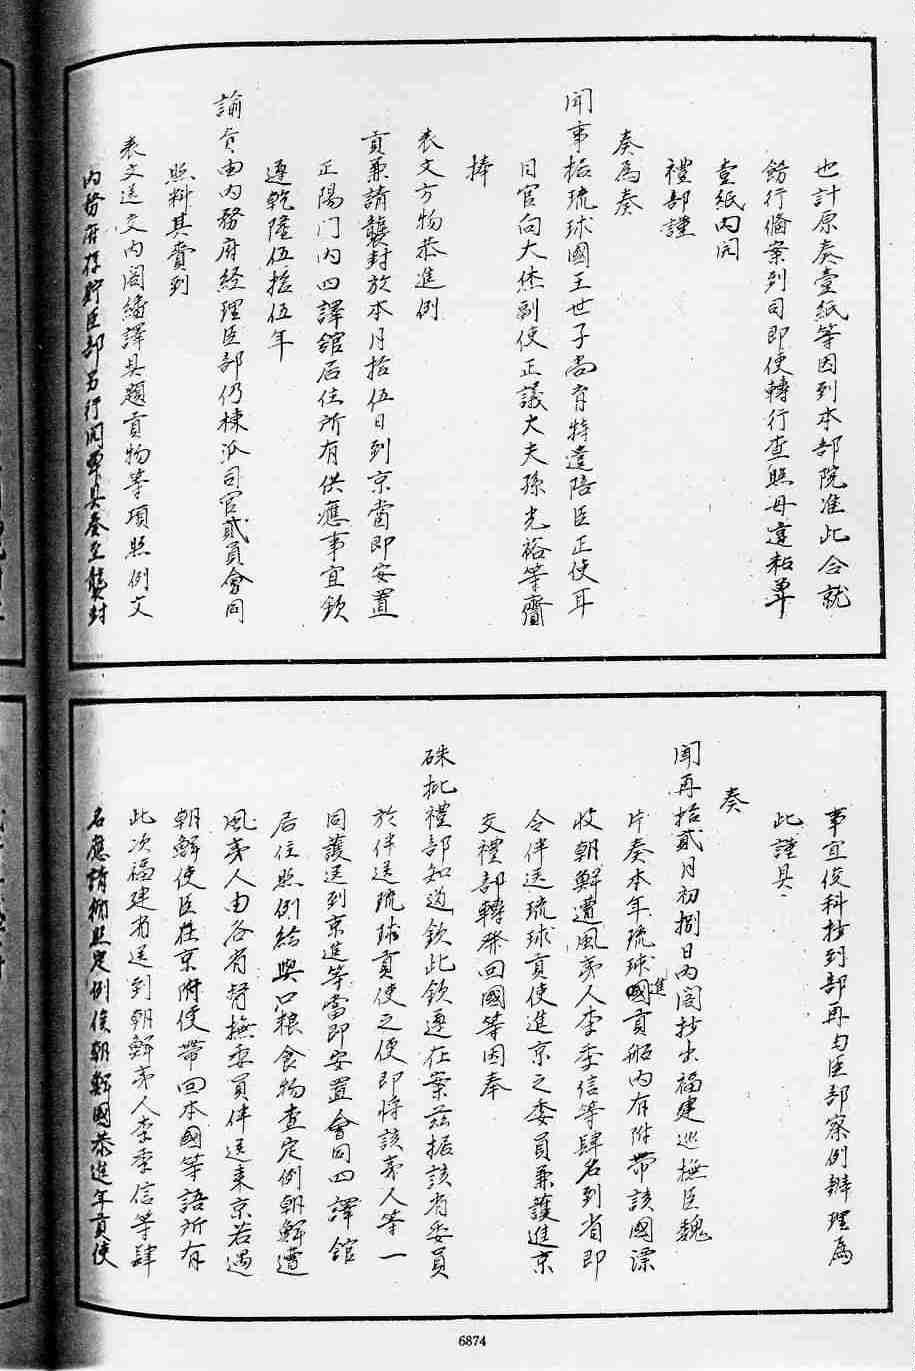 也計原奏壹紙等因到本部院准此合就
飭行備案到司即便轉行查照毋違粘單
壹紙內開
禮部謹
奏為奏
聞事據琉球國王世子尚育特遣陪臣正使耳
目官向大烋副使正議大夫孫光裕等齎
捧
表文方物恭進例
貢兼請襲封於本月拾伍日到京當即安置
正陽門內四譯館居住所有供應事宜欽
遵乾隆伍拾伍年
諭旨由內務府經理臣部仍棟派司官貳員會同
照料其賫到
表文送交內閣繙譯具題貢物等項照例交
內務府存貯臣部另行開單具奏至襲封
事宜俟科抄到部再由臣部察例辦理為
此謹具
奏
聞再拾貳月初捌日內閣抄出福建巡撫臣魏
片奏本年琉球國進貢船內有附帶該國漂
收朝鮮遭風夷人李季信等肆名到省即
令伴送琉球貢使進京之委員兼護進京
交禮部轉發回國等因奉
硃批禮部知道欽此欽遵在案茲據該省委員
於伴送琉球貢使之便即將該夷人等一
同護送到京進等當即安置會同四譯館
居住照例給與口粮食物查定例朝鮮遭
風夷人由各省督撫委員伴送來京若遇
朝鮮使臣在京附使帶回本國等語所有
此次福建省送到朝鮮夷人李季信等肆
名應請倣照定例俟朝鮮國恭進年貢使
6874